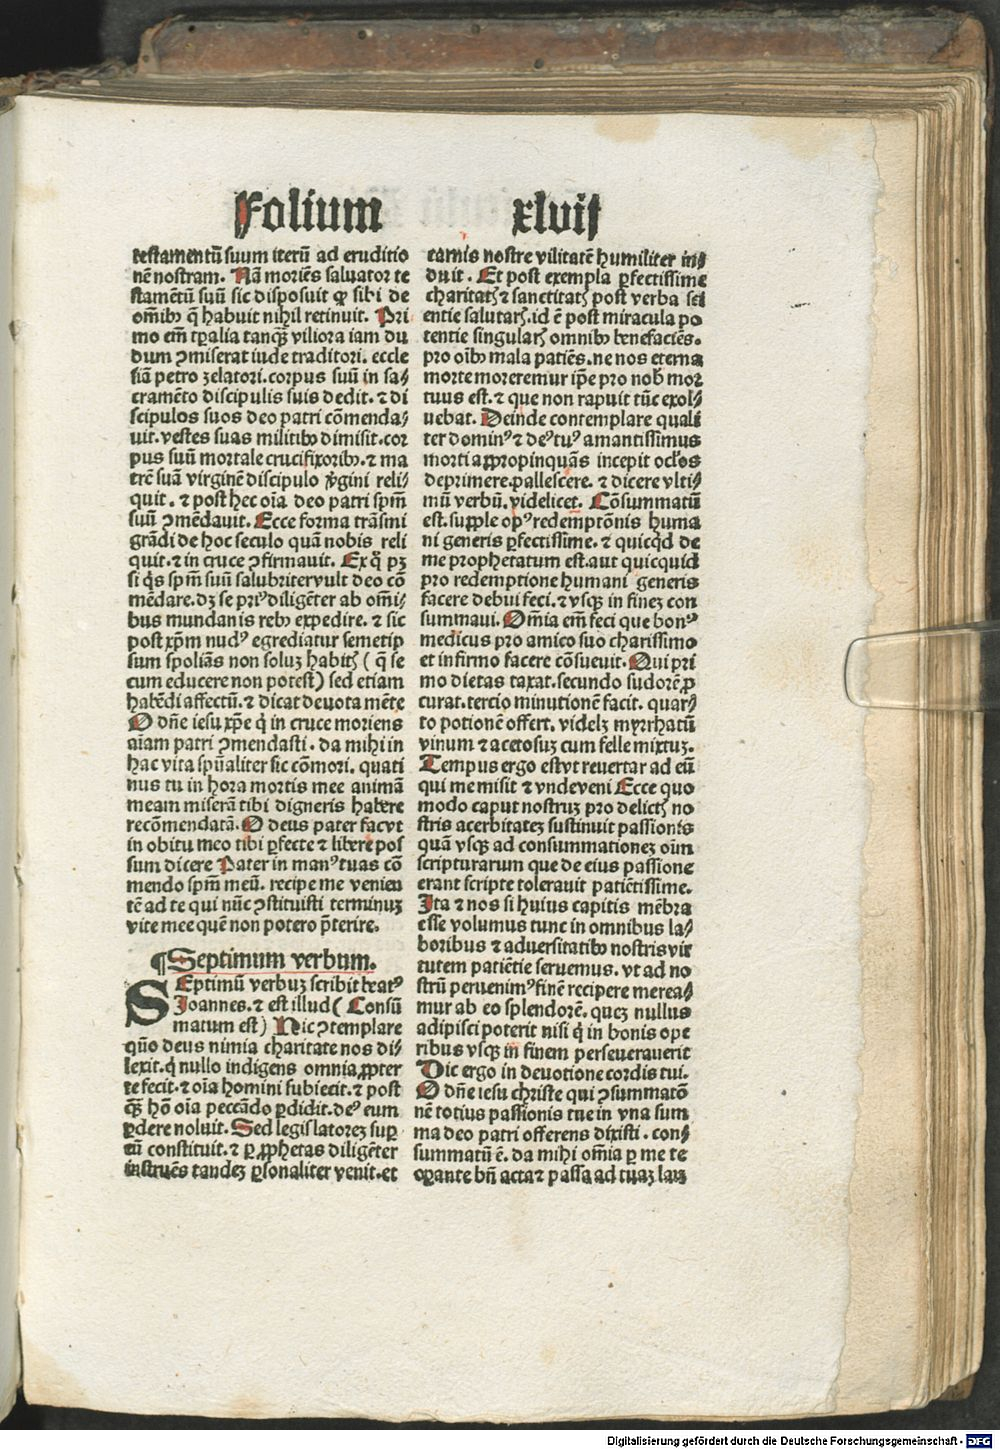 Folium xlvij
testamentū suum iterū ad eruditio
nē nostram. Nā moriēs saluator te
stamētū suū sic disposuit ꝙ sibi de
om̄ibꝰ q̄ habuit nihil retinuit. Pri
mo em̄ tp̄alia tanqꝫ viliora iam du
dum ꝯmiserat iude traditori. eccle
siā petro zelatori. corpus suū in sa⸗
cramēto discipulis suis dedit. ⁊ di
scipulos suos deo patri cōmenda⸗
uit. vestes suas militibꝰ dimisit. cor
pus suū mortale crucifixoribꝰ. ⁊ ma
trē suā virginē discipulo v̓gini reli⸗
quit. ⁊ post hec oīa deo patri spm̄
suū ꝯmēdauit. Ecce forma trāsmi
grādi de hoc seculo quā nobis reli
quit. ⁊ in cruce ꝯfirmauit. Ex qͦ pꝫ
si qͥs spm̄ suū salubriter vult deo cō
mēdare. dꝫ se priꝰ diligēter ab om̄i⸗
bus mundanis rebꝰ expedire. ⁊ sic
post xp̄m nudꝰ egrediatur semetip
sum spoliās non soluꝫ habitꝭ ( q̄ se
cum educere non potest ) sed etiam
habēdi affectū. ⁊ dicat deuota mēte
O dn̄e iesu xp̄e qͥ in cruce moriens
aīam patri ꝯmendasti. da mihi in
hac vita spūaliter sic cōmori. quati
nus tu in hora mortis mee animā
meam miserā tibi digneris habere
recōmendatā. O deus pater fac vt
in obitu meo tibi ꝑfecte ⁊ libere pos
sum dicere Pater in manꝰ tuas cō
mendo spm̄ meū. recipe me venien
tē ad te qui nūc ꝯstituisti terminuꝫ
vite mee quē non potero p̄terire.
¶ Septimum verbum.
SEptimū verbuꝫ scribit beatꝰ
Joannes. ⁊ est illud ( Consū
matum est ) Hic ꝯtemplare
qūo deus nimia charitate nos di⸗
lexit. qͥ nullo indigens omnia ꝓpter
te fecit. ⁊ oīa homini subiecit. ⁊ post
qꝫ hō oīa peccādo ꝑdidit. deꝰ eum
ꝑdere noluit. Sed legislatoreꝫ suꝑ
eū constituit. ⁊ ꝑ ꝓphetas diligēter
instruēs tandeꝫ ꝑsonaliter venit. et
carnis nostre vilitatē humiliter in⸗
duit. Et post exempla ꝑfectissime
charitatꝭ ⁊ sanctitatꝭ post verba sci
entie salutarꝭ. id ē post miracula po
tentie singularꝭ omnibꝰ benefaciēs.
pro oībꝰ mala patiēs. ne nos eterna
morte moreremur ip̄e pro nobꝭ mor
tuus est. ⁊ que non rapuit tūc exol⸗
uebat. Deinde contemplare quali
ter dominꝰ ⁊ deꝰ tuꝰ amantissimus
morti appropinquās incepit oc̄los
deprimere. pallescere. ⁊ dicere vlti⸗
mū verbū. videlicet. Cōsummatū
est. supple opꝰ redemptōnis huma
ni generis ꝑfectissime. ⁊ quicqͥd de
me prophetatum est. aut quicquid
pro redemptione humani generis
facere debui feci. ⁊ vsqꝫ in fineꝫ con
summaui. Om̄ia em̄ feci que bonꝰ
medicus pro amico suo charissimo
et infirmo facere cōsueuit. Qui pri
mo dietas taxat. secundo sudorē ꝓ
curat. tercio minutionē facit. quar⸗
to potionē offert. videlꝫ myrrhatū
vinum ⁊ acetosuꝫ cum felle mixtuꝫ.
Tempus ergo est vt reuertar ad eū
qui me misit ⁊ vnde veni Ecce quo
modo caput nostruꝫ pro delictꝭ no
stris acerbitateꝫ sustinuit passionis
quā vsqꝫ ad consummationeꝫ oīm
scripturarum que de eius passione
erant scripte tolerauit patiētissime.
Ita ⁊ nos si huius capitis mēbra
esse volumus tunc in omnibus la⸗
boribus ⁊ aduersitatibꝰ nostris vir
tutem patiētie seruemus. vt ad no
strū peruenimꝰ finē recipere merea⸗
mur ab eo splendorē. queꝫ nullus
adipisci poterit nisi qͥ in bonis ope
ribus vsqꝫ in finem perseuerauerit
Dic ergo in deuotione cordis tui.
O dn̄e iesu christe qui ꝯsummatō
nē totius passionis tue in vna sum
ma deo patri offerens dixisti. con⸗
summatū ē. da mihi om̄ia ꝑ me te
oꝑante bn̄ acta ⁊ passa ad tuaꝫ lau
Digitalisierung gefördert durch die Deutsche Forschungsgemeinschaft - DFG